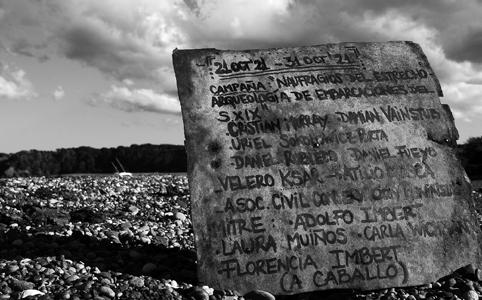 "21 OCT 21 - 31 OCT 21"
CAMPAÑA: NAUFRAGIOS DEL ESTRECHO
ARQUEOLOGIA DE EMBARCACIONES DEL
S XIX
CRISTIAN MURRAY DAMIAN VAINSTUB
URIEL
DANIEL ROBLEDO DANIEL FUEYO
-VELERO KSAR - ATILIO
-ASOC. CIVIL
MITRE: ADOLFO IMBERT
-LAURA MUIÑOS - CARLA
-FLORENCIA IMBERT
(A CABALLO)